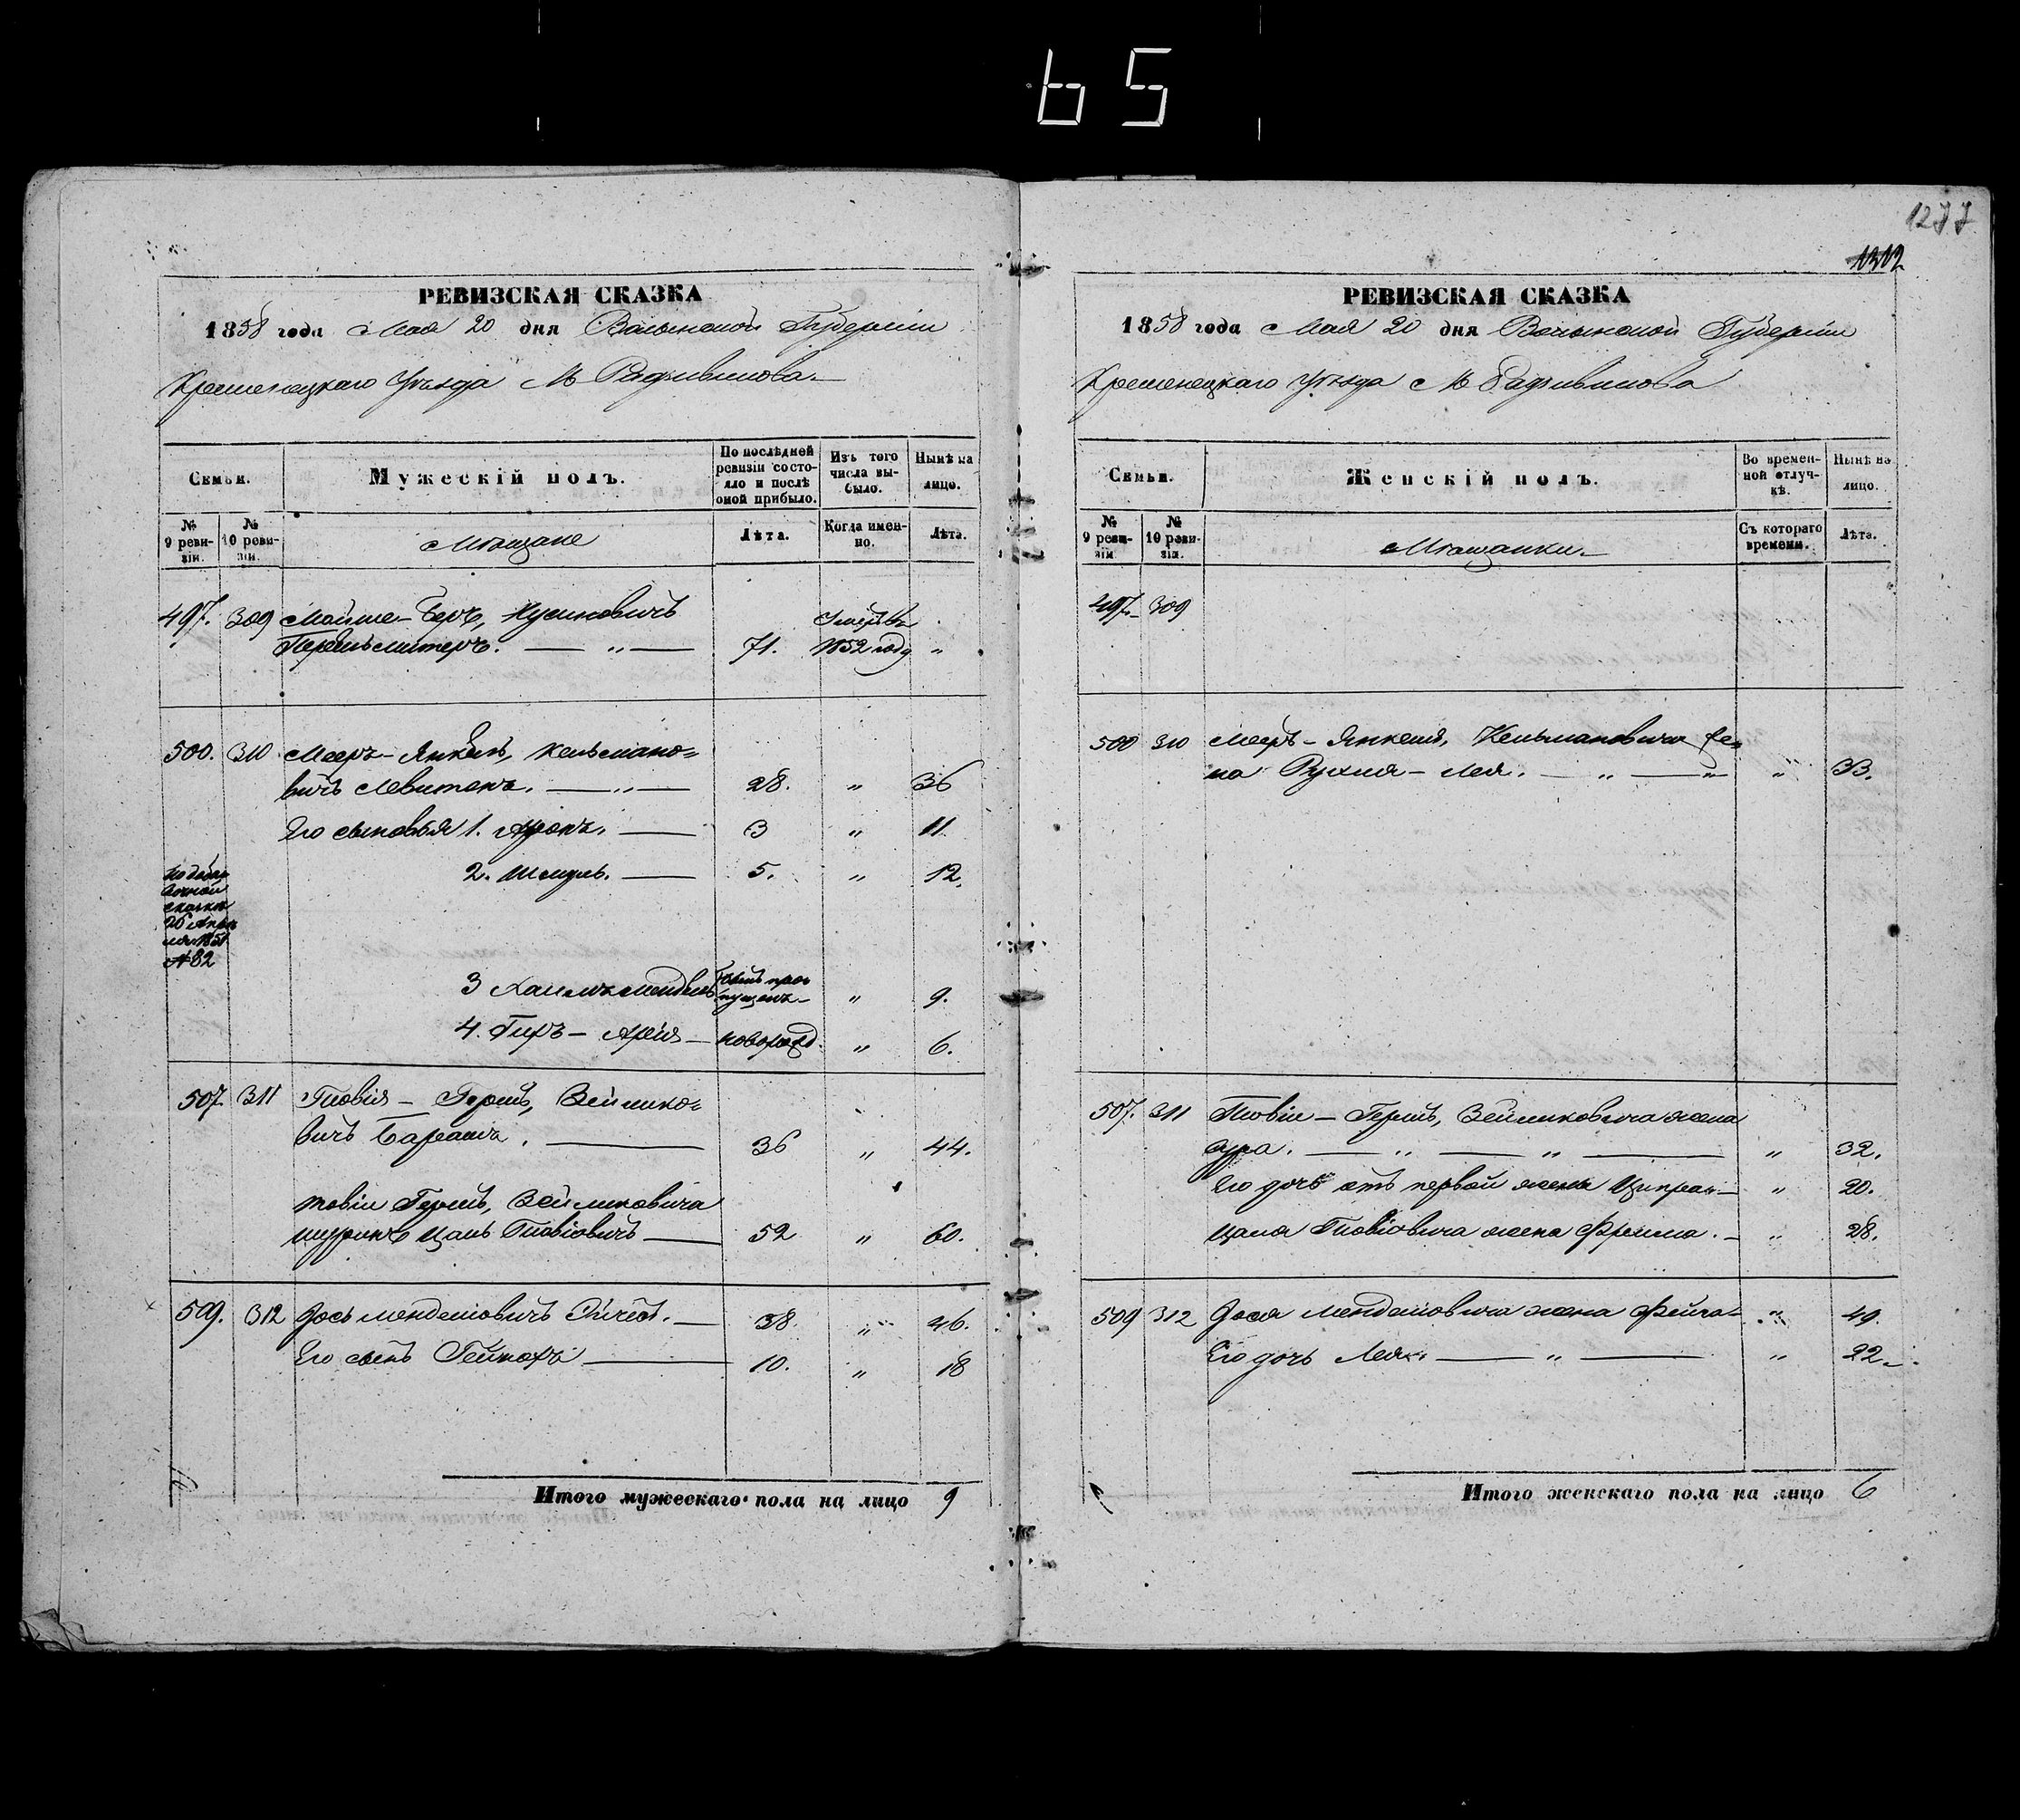 65
1277
1312
РЕВИЗСКАЯ СКАЗКА
1858 года Мая 20 дня Волынской Губерніи
Кременецкаго Уѣзда М Радзивилова
Семьи.
Мужескій полъ.
По послѣдней ревизіи состояло и послѣ оной прибыло.
Изъ того числа выбыло.
Нынѣ на лицо.
№ 9 ревизіи.
№ 10 ревизіи.
Мѣщане
Лѣта.
Когда именно.
Лѣта.
497. 309 Мойше-Беръ, Нусиновичъ
71. 1852 году "
500. 310 Мееръ-Янкель, Кельмано=
вичъ Левитанъ. — " — 28. " 36
Его сыновья 1. Аронъ. — 3 " 11
2. Шмуль. — 5. " 12.
№ 82
3 Хаимъ Мендель былъ пропущенъ " 9.
4. Гиръ-Арія — новорожд. " 6.
507 311 Товія-Гершъ, Зейлико=
вичъ — 36 " 44.
Товіи Гершъ, Зейликовича
шуринъ Цаль Товіовичъ — 52 " 60.
509. 312 Іось Менделіовичъ — 38 " 46.
Его сынъ — 10. " 18
Итого мужескаго пола на лицо 9
РЕВИЗСКАЯ СКАЗКА
1858 года Мая 20 дня Волынской Губерніи
Кременецкаго Уѣзда М Радзивилова
Семьи.
Женскій полъ.
Во временной отлучкѣ.
Нынѣ на лицо.
№ 9 ревизіи.
№ 10 ревизія.
Мѣщанки.
Съ котораго времени.
Лѣта.
497. 309
500 310 Мееръ-Янкеля, Кельмановича же=
на Рухля-Лея. — " — " " 33.
507. 311 Товіи-Гершъ, Зейликовича жена
Сура. — " — " — " 32.
Его дочь отъ первой жены Ципра — " 20.
Цаля Товіовича жена Фрейма. — " 28.
509 312 Іося Менделіовича жена Фейга — " 49.
Его дочь Лея. — " — " 22.
Итого женскаго пола на лицо 6